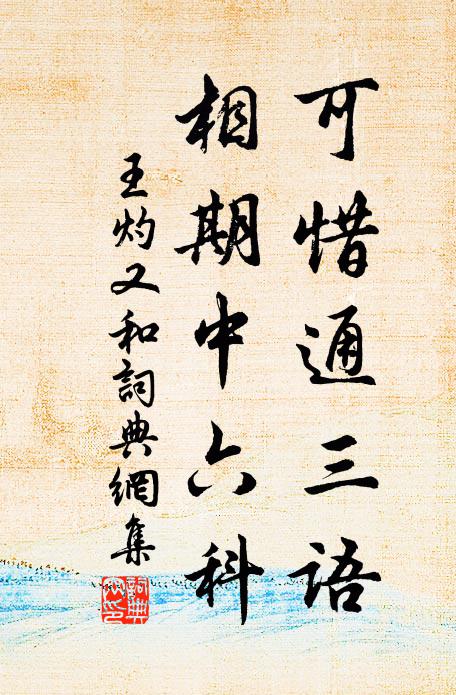 可惜通三语
相期中六科
王灼又和詞典網集
詞典